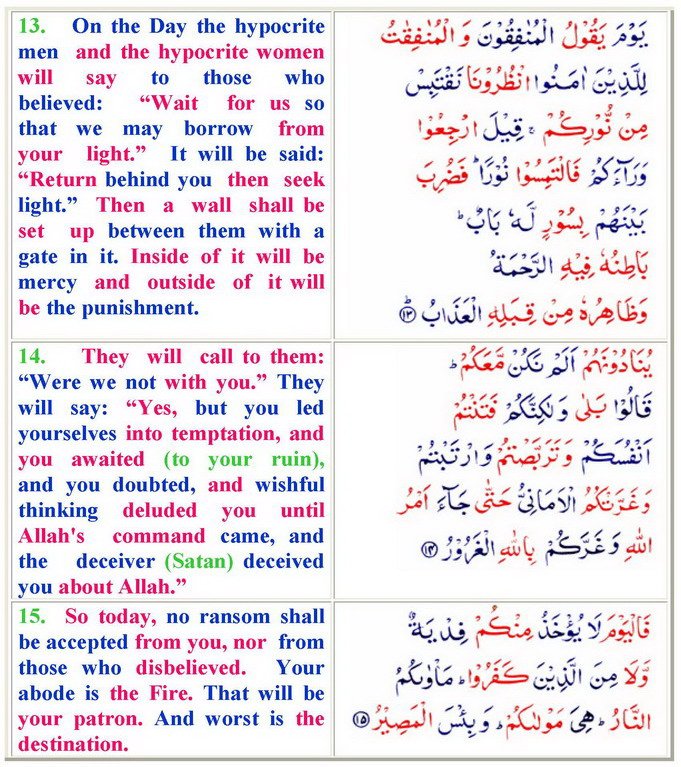 13. On the Day the hypocrite
men and the hypocrite women
will say to those who
believed: “Wait for us so
that we may borrow from
your light.” It will be said:
“Return behind you then seek
light.” Then a wall shall be
set up between them with a
gate in it. Inside of it will be
mercy and outside of it will
be the punishment.
يَوْمَ يَقُوْلُ الْمُنٰفِقُوْنَ وَ الْمُنٰفِقٰتُ
لِلَّذِيْنَ اٰمَنُوا انْظُرُوْنَا نَقْتَبِسْ
مِنْ نُّوْرِكُمْ ۚ قِيْلَ ارْجِعُوْا
وَرَآءَكُمْ فَالْتَمِسُوْا نُوْرًا ؕ فَضُرِبَ
بَيْنَهُمْ بِسُوْرٍ لَّهٗ بَابٌ ؕ
بَاطِنُهٗ فِيْهِ الرَّحْمَةُ
وَظَاهِرُهٗ مِنْ قِبَلِهِ الْعَذَابُ ؕ۱۳
14. They will call to them:
“Were we not with you.” They
will say: “Yes, but you led
yourselves into temptation, and
you awaited (to your ruin),
and you doubted, and wishful
thinking deluded you until
Allah's command came, and
the deceiver (Satan) deceived
you about Allah.”
يُنَادُوْنَهُمْ اَلَمْ نَكُنْ مَّعَكُمْ ؕ
قَالُوْا بَلٰى وَ لٰكِنَّكُمْ فَتَنْتُمْ
اَنْفُسَكُمْ وَ تَرَبَّصْتُمْ وَ ارْتَبْتُمْ
وَ غَرَّتْكُمُ الْاَمَانِىُّ حَتّٰى جَآءَ اَمْرُ
اللّٰهِ وَ غَرَّكُمْ بِاللّٰهِ الْغَرُوْرُ ۱۴
15. So today, no ransom shall
be accepted from you, nor from
those who disbelieved. Your
abode is the Fire. That will be
your patron. And worst is the
destination.
فَالْيَوْمَ لَا يُؤْخَذُ مِنْكُمْ فِدْيَةٌ
وَّلَا مِنَ الَّذِيْنَ كَفَرُوْا ؕ مَاْوٰىكُمُ
النَّارُ ؕ هِىَ مَوْلٰىكُمْ ؕ وَ بِئْسَ الْمَصِيْرُ ۱۵